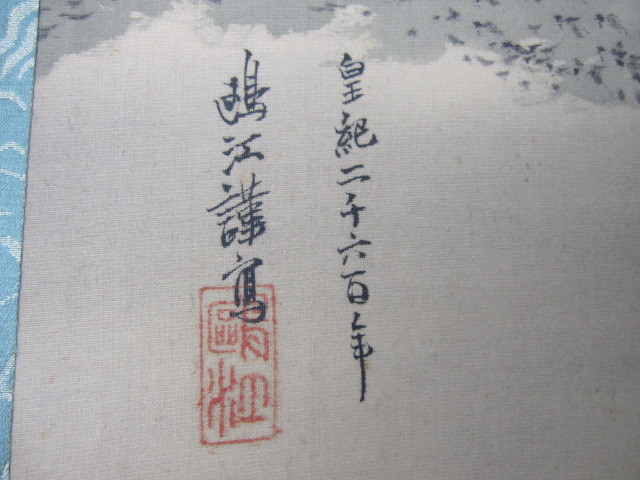 皇紀二千六百年
鴎江謹寫
鷗江